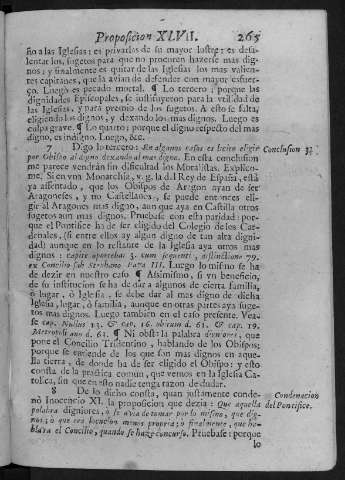 Proposicion XLVII. 265
ño a las Iglesias: es privarlas de su mayor lustre: es desa-
lentar los sugetos para que no procuren hazerse mas dig-
nos: y finalmente es quitar de las Iglesias los mas valien-
tes capitanes, que la avian de defender con mayor esfuer-
ço. Luego es pecado mortal. ¶ Lo tercero: porque las
dignidades Episcopales, se instituyeron para la utilidad de
las Iglesias, y para premio de los sugetos. A esto se falta,
eligiendo los dignos, y dexando los mas dignos. Luego es
culpa grave. ¶ Lo quarto: porque el digno respecto del mas
digno, es indigno. Luego, &c.
7 Digo lo tercero: En algunos casos es licito eligir
por Obispo al digno dexando al mas digno. En esta conclusion
me parece vendràn sin dificultad los Moralistas. Explico-
me. Si en vna Monarchia, v.g. la del Rey de España, està
ya assentado, que los Obispos de Aragon ayan de ser
Aragoneses, y no Castellanos, se puede entonces eli-
gir al Aragonès mas digno, aunque aya en Castilla otros
sugetos aun mas dignos. Pruebase con esta paridad: por-
que el Pontifice ha de ser eligido del Colegio de los Car-
denales, (si entre ellos ay algun digno de tan alta digni-
dad) aunque en lo restante de la Iglesia aya otros mas
dignos: capite oportebat 3. cum sequenti, distinctione 79.
ex Concilio sub Stephano Papa III. Luego lo mismo se ha
de dezir en nuestro caso. ¶ Assimismo, si vn beneficio,
de su institucion se ha de dar a algunos de cierta familia,
ò lugar, ò Iglesia, se debe dar al mas digno de dicha
Iglesia, lugar, ò familia, aunque en otras partes aya suge-
tos mas dignos. Luego tambien en el caso presente. Vea-
se cap. Nullus 13. & cap. 16. obitum d. 61. & cap. 19.
Metropolitano d. 63. ¶ Ni obsta la palabra digniores, que
pone el Concilio Tridentino, hablando de los Obispos;
porque se entiende de los que son mas dignos en aque-
lla tierra, de donde ha de ser eligido el Obispo: y esto
consta de la practica comun, que vemos en la Iglesia Ca-
tolica, sin que en esto nadie tenga razon de dudar.
8 De lo dicho consta, quan justamente conde-
nò Inocencio XI. la proposicion que dezia: Que aquella
palabra digniores, ò se avia de tomar por lo mismo, que dig-
nos; ò que era locucion menos propria; ò finalmente, que ha-
blava el Concilio, quando se haze concurso. Pruebase: porque
lo
Conclusion 3.
Condenacion
del Pontifice.